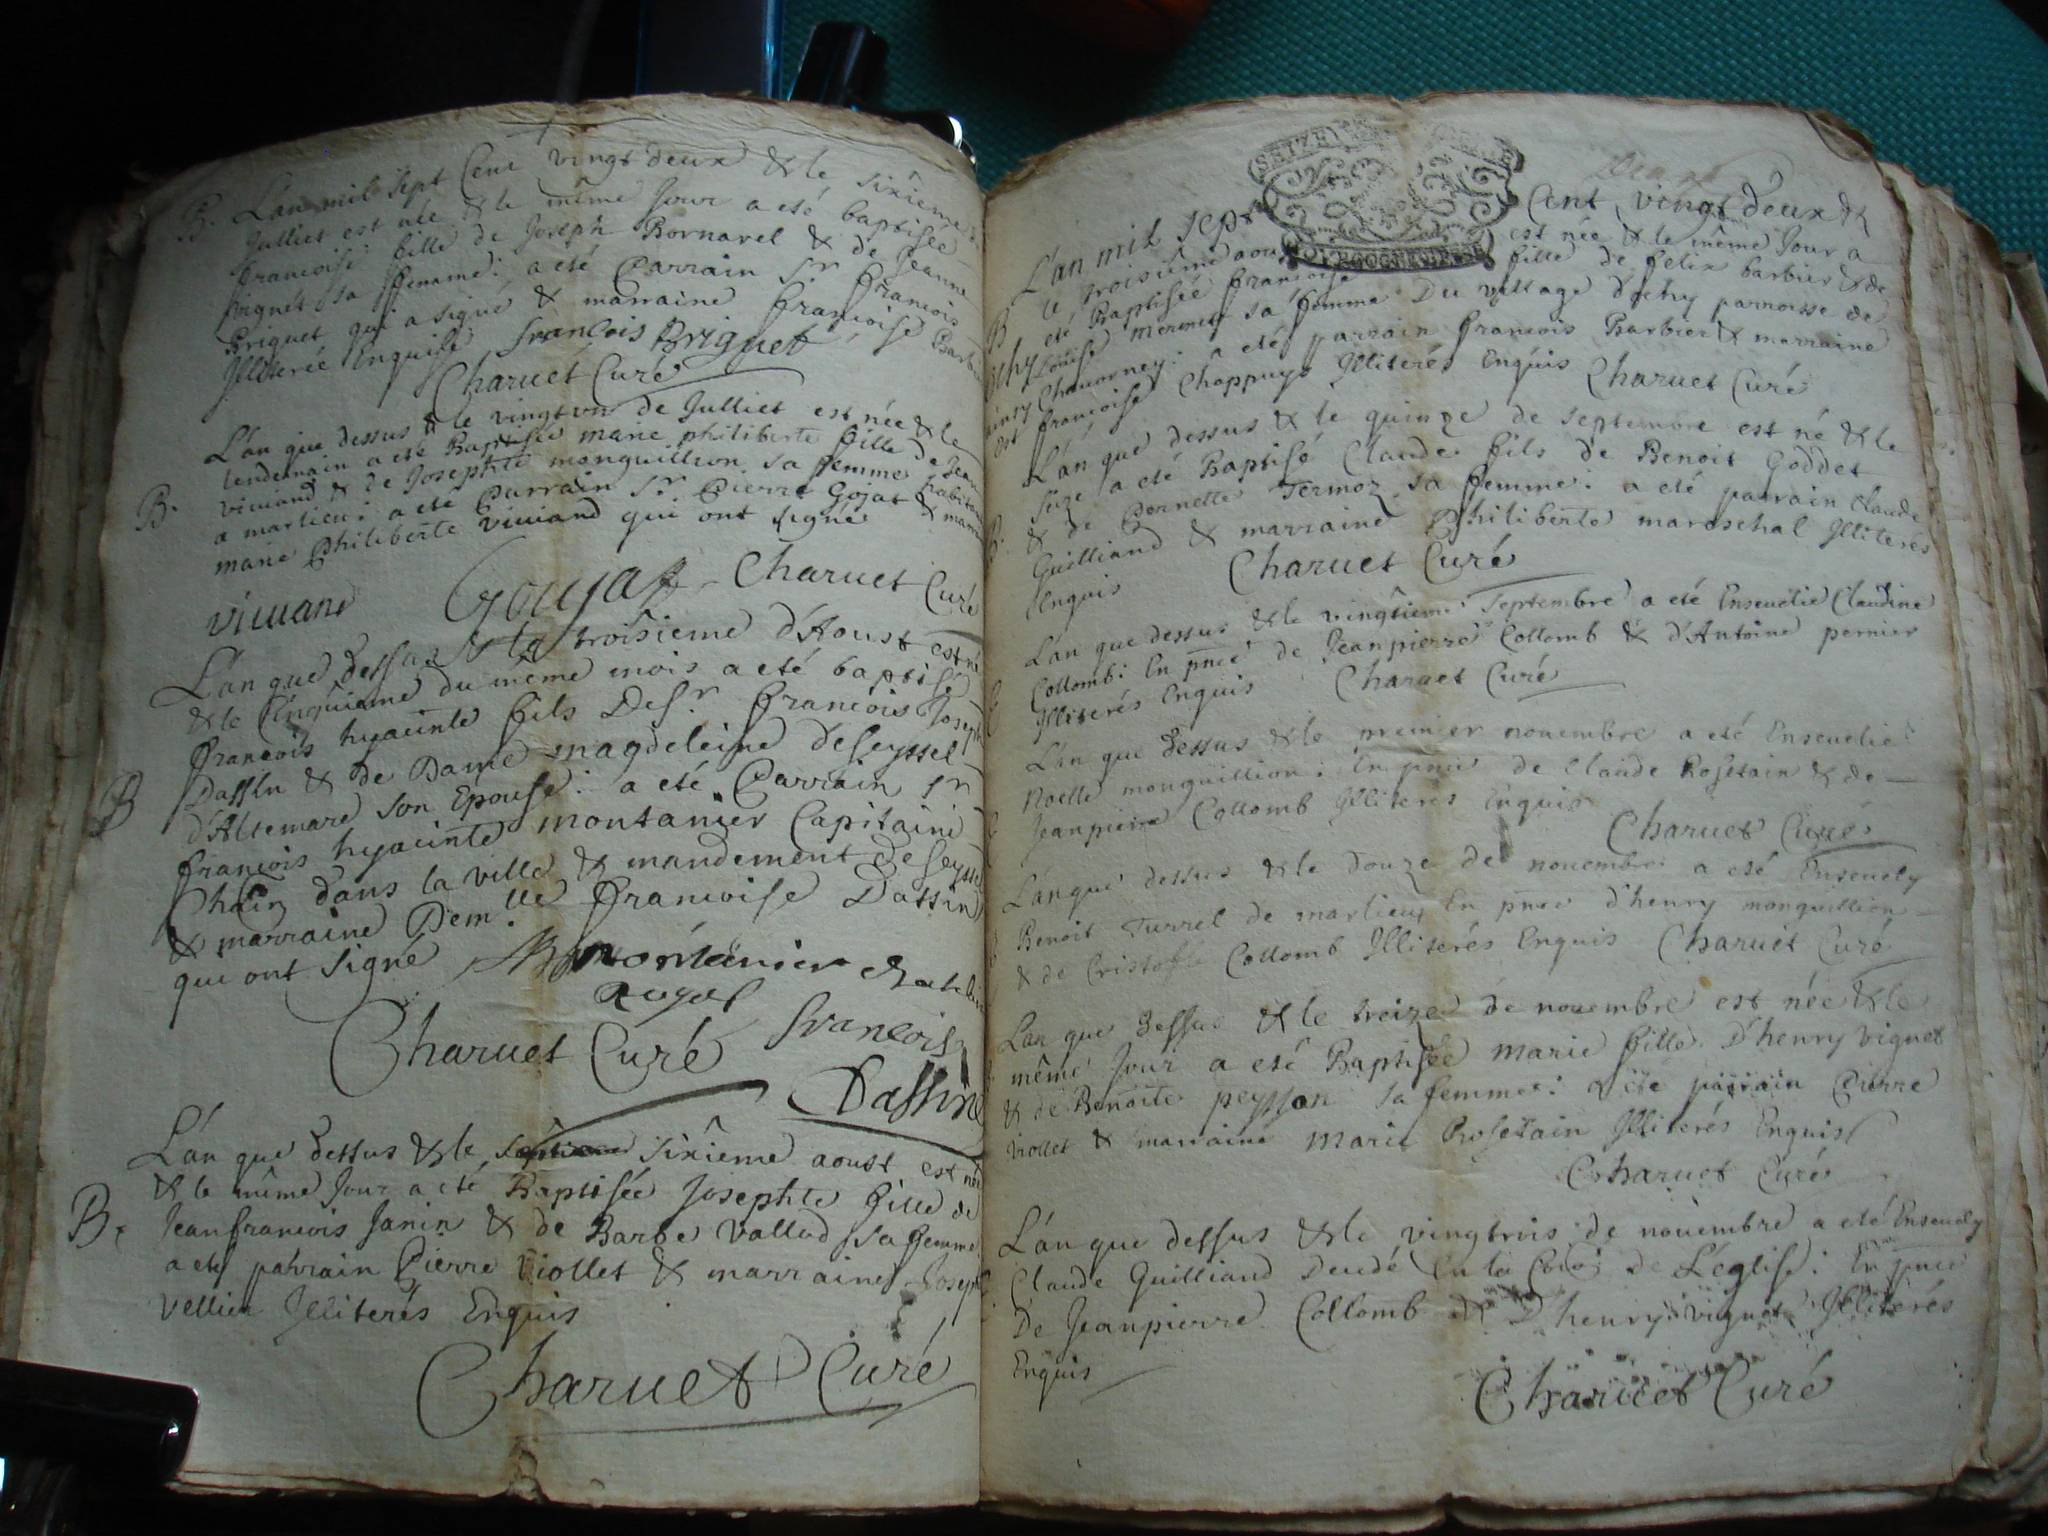 B. L'an mil sept Cent vingt deux & le sixième
Julliet est née & le même Jour a eté baptisée
francoise fille de Joseph Bornarel & de Jeanne
vignet sa ffemme: a eté Parrain Sr François
Briguet qui a signé & marraine francoise
Illiterée Enquise françois Briguet
Charuet Curé
L'an que dessus & le vingt un de Julliet est née & le
lendemain a eté Baptisée marie philiberte fille de Jean
B. viuiand & de Josephte monguillion sa femme
a marlieu: a eté Parrain Sr. Pierre Gojat &
marie Philiberte viuiand qui ont signé
viuiand Goujat Charuet Curé
L'an que dessus & le troisieme d'Aoust est né
& le Cinquieme du même mois a eté baptisé
françois hyacinte fils De Sr. francois Joseph
B Dassin & de Dame magdeleine de Seyssel
d'Altemare son Epouse: a eté Parrain Sr
françois hyacinte montanier Capitaine
Chatin dans la ville & mandement de Seyssel
& marraine Dem.lle francoise Dassin
qui ont signé montanier
Royal françois
Charuet Curé Dassin
L'an que dessus & le sixieme aoust est née
& le même Jour a eté Baptisée Josephte fille de
B. Jeanfrancois Janin & de Barbe Vallod sa femme
a eté parrain Pierre Viollet & marraine Joseph
Vellier Illiterés Enquis
Charuet Curé
SEIZE
L'an mil sept Cent vingt deux &
le troisième aoust est née & le même Jour a
B eté Baptisée francoise fille de felix barbier & de
Louise mermet sa femme Du village d'ochy parroisse de
Chauorney: a eté parrain francois Barbier & marraine
francoise Chappuys Illiterés Enquis Charuet Curé
L'an que dessus & le quinze de septembre est né & le
seize a eté Baptisé Claude fils de Benoit Goddet
B. & de Pernette Termoz sa ffemme: a eté parrain Claude
Guilliand & marraine Philiberte mareschal Illiterés
Enquis Charuet Curé
L'an que dessus & le vingtieme Septembre a eté Enseuelie Claudine
Collomb: En pnce de Jeanpierre Collomb & d'Antoine pernier
Illiterés Enquis Charuet Curé
L'an que dessus & le premier nouembre a eté Enseuelie
Noelle monguillion: En pnce de Claude Rosetain & de
Jeanpierre Collomb Illiterés Enquis
Charuet Curé
L'an que dessus & le douze de nouembre a eté Enseuely
Benoit Turrel de marlieux En pnce d'henry monguillion
& de Cristofle Collomb Illiterés Enquis Charuet Curé
L'an que dessus & le treize de nouembre est née & le
même Jour a eté Baptisée marie fille D'henry vignet
& de Benoite peysson sa femme: a eté parrain Pierre
viollet & marraine marie Rosetain Illiterés Enquis
Charuet Curé
L'an que dessus & le vingtrois de nouembre a eté Enseuely
Claude Guilliand Decedé En la de L'eglise: En pnce
De Jeanpierre Collomb & D'henry vignet Illiterés
Enquis
Charuet Curé